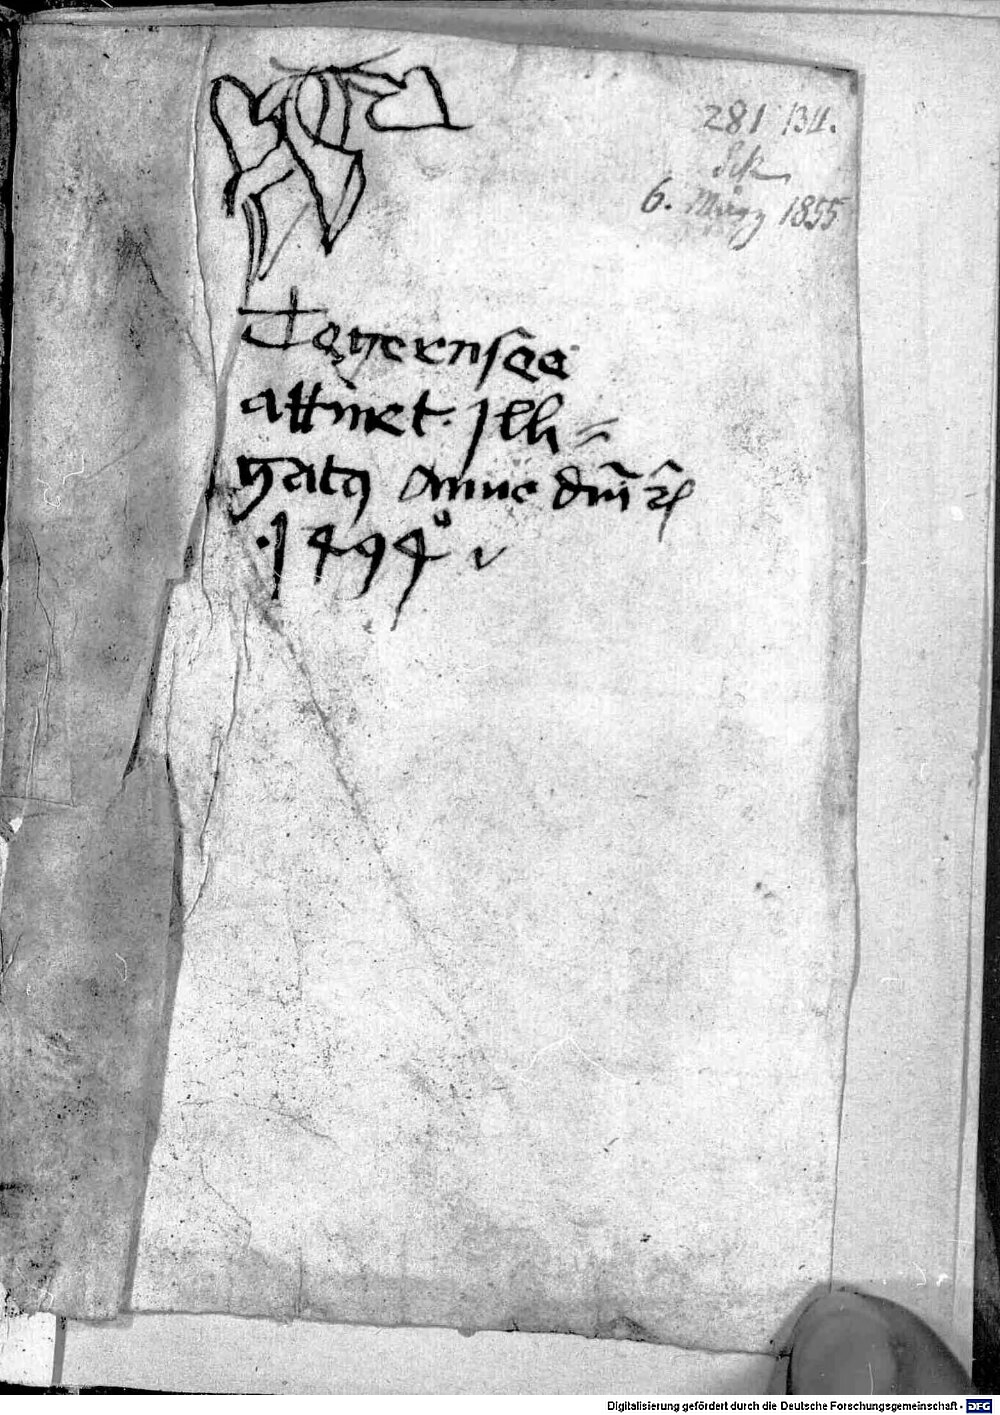 281 Bll.
6. März 1855
Tegernsee
attinet. Jllh
gatq Anno dm̄
.1494°
Digitalisierung gefördert durch die Deutsche Forschungsgemeinschaft - DFG